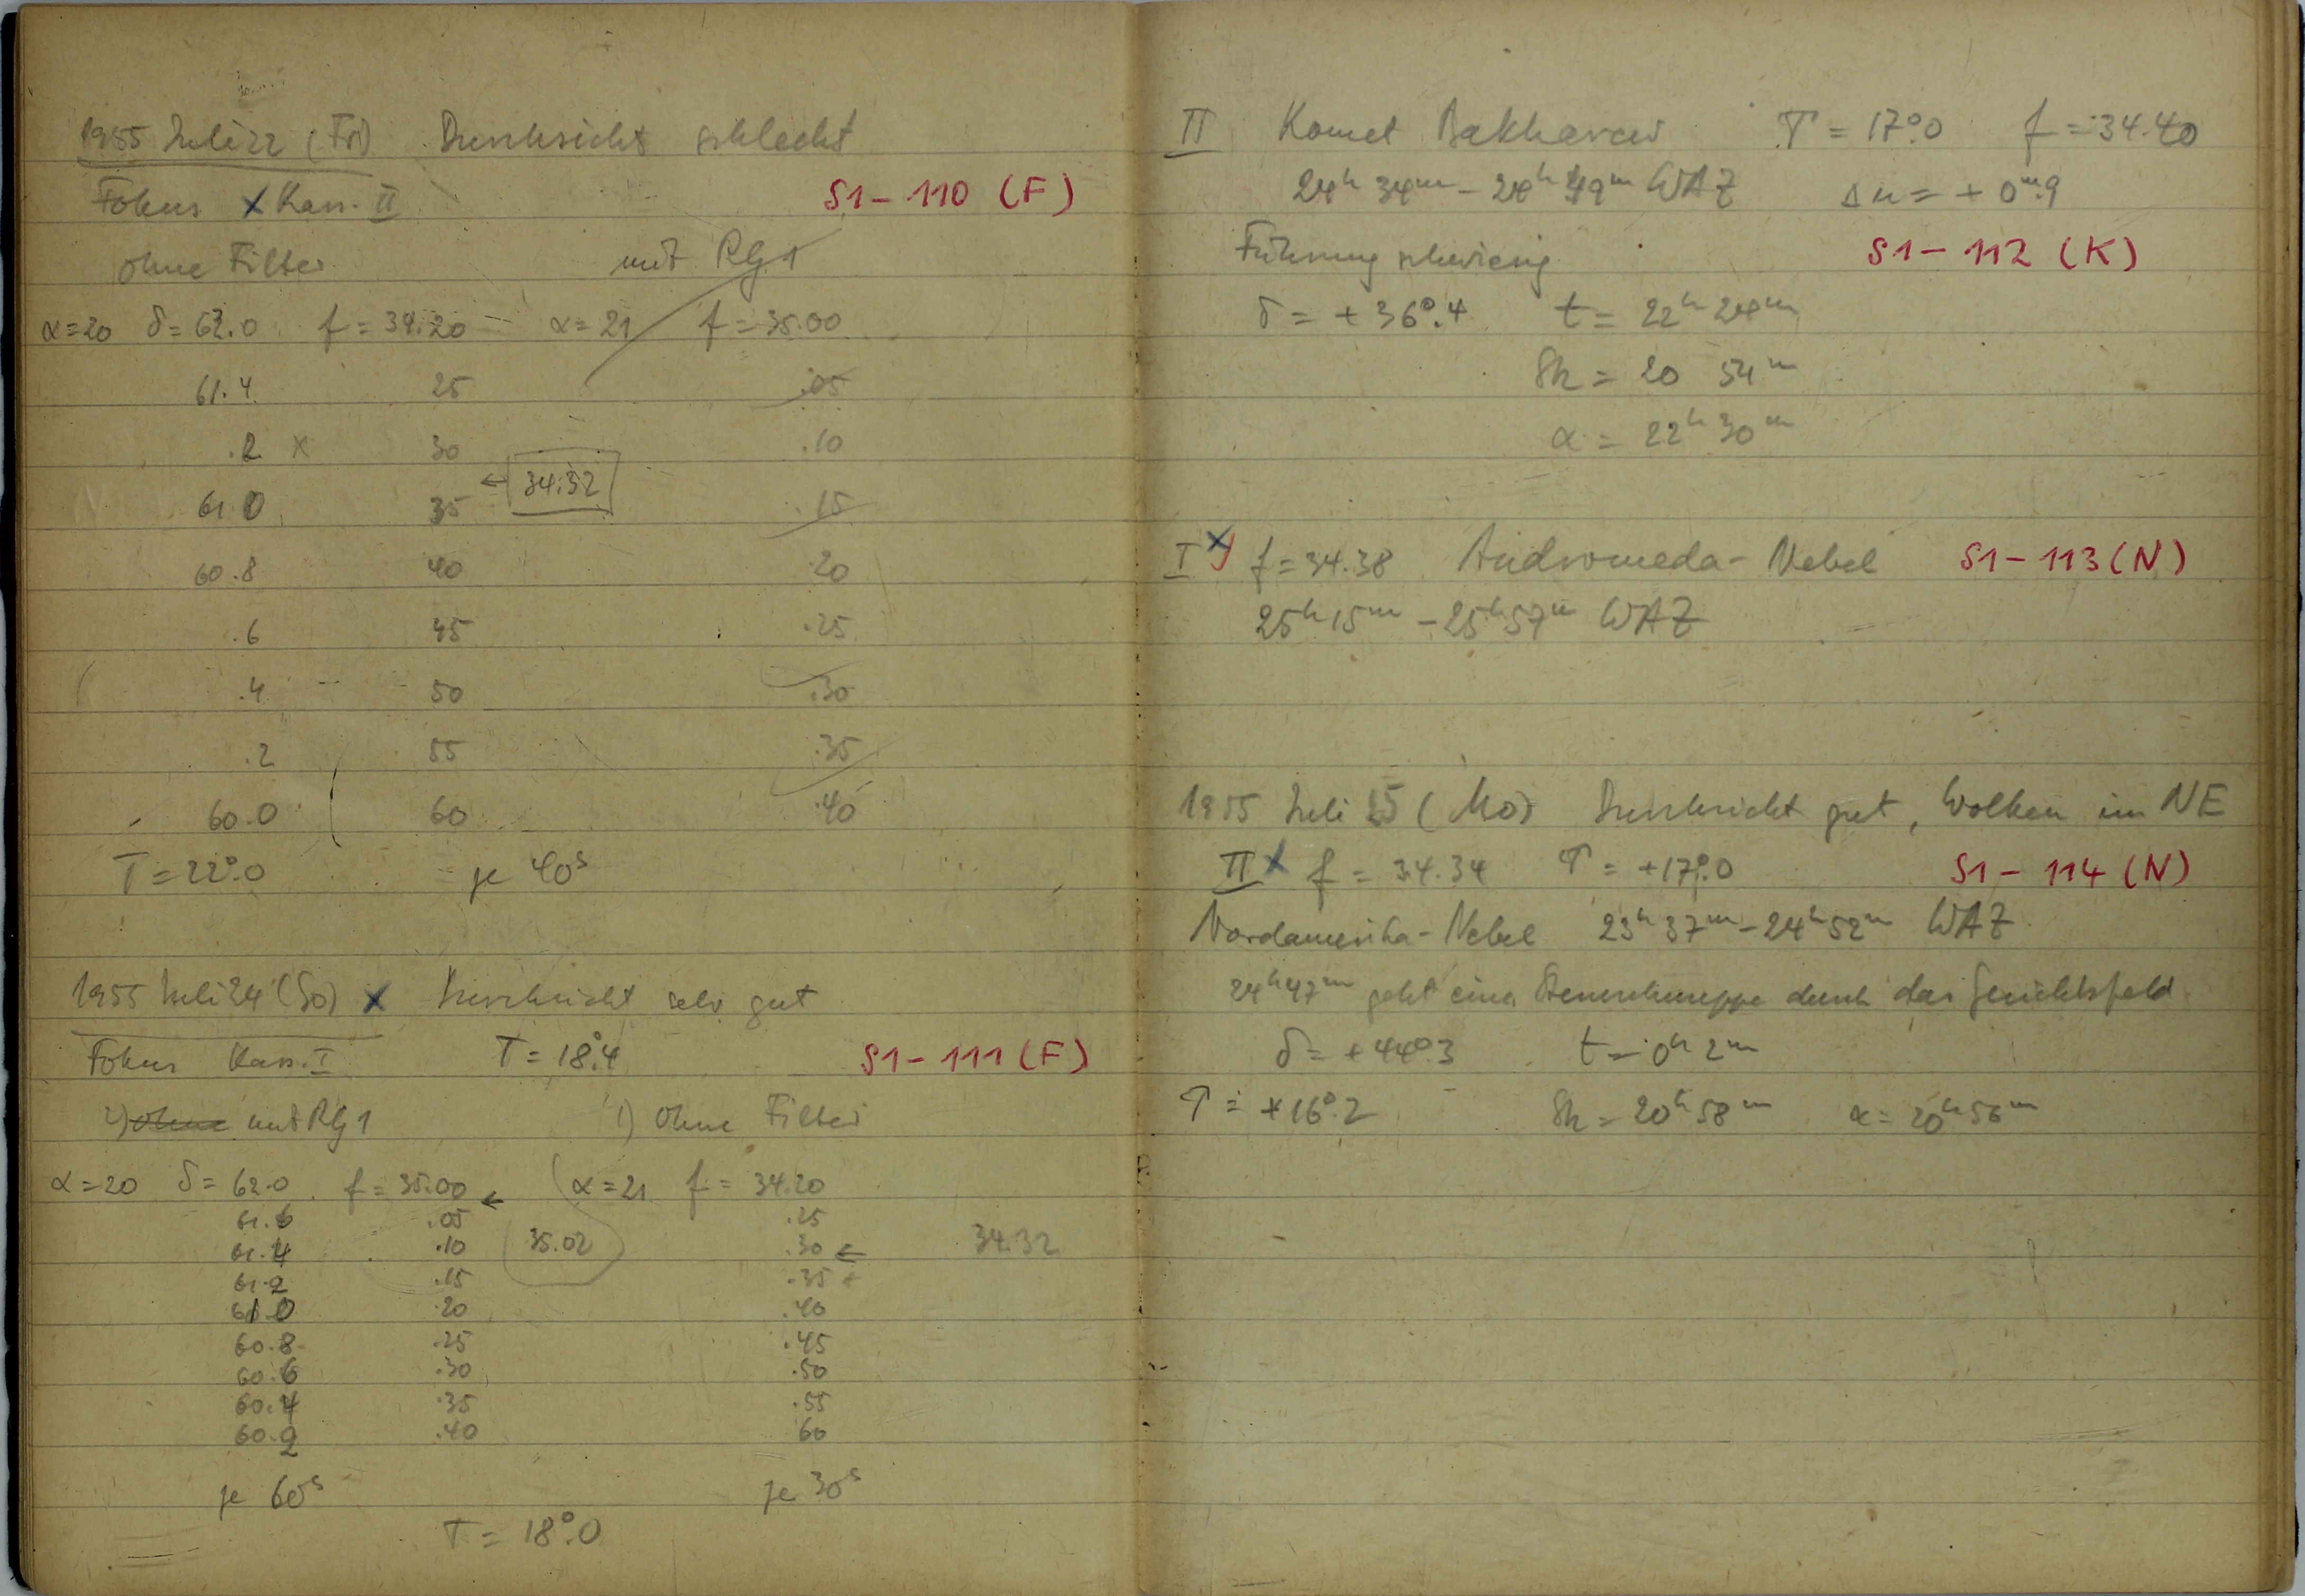 1955 Juli 22 (Fr) Durchsicht schlecht
Fokus x Kass. II S1-110 (F)
ohne Filter mit RG1
α=20 δ=62.0 f=34.20 α=21 f=35.00
61.4 25 .05
.2 x 30 .10
← 34.32
61.0 35 .15
60.8 40 .20
.6 45 .25
.4 50 .30
.2 55 .35
60.0 60 .40
T=22°.0 je 40s
1955 Juli 24 (So) x Durchsicht sehr gut
Fokus Kass. I T=18°.4 S1-111 (F)
2) ohne mit RG1 1) ohne Filter
α=20 δ=62.0 f=35.00 ← α=21 f=34.20
61.6 .05 .25
61.4 .10 35.02 .30 ← 34.32
61.2 .15 .35 +
61.0 .20 .40
60.8 .25 .45
60.6 .30 .50
60.4 .35 .55
60.2 .40 60
je 60s je 30s
T=18°.0
II Komet Bakharev T=17°.0 f=34.40
24h 34m - 24h 49m WAZ Δm=+0m.9
Führung schwierig S1-112 (K)
δ=+36°.4 t=22h 24m
Sh=20 54m
α=22h 30m
I x f=34.38 Andromeda-Nebel S1-113 (N)
25h 15m - 25h 57m WAZ
1955 Juli 25 (Mo) Durchsicht gut, Wolken im NE
II x f=34.34 T=+17°.0 S1-114 (N)
Nordamerika-Nebel 23h 37m - 24h 52m WAZ
24h 47m geht eine Sternschnuppe durch das Gesichtsfeld
δ=+44°.3 t=0h 2m
T=+16°.2 Sh=20h 58m α=20h 56m